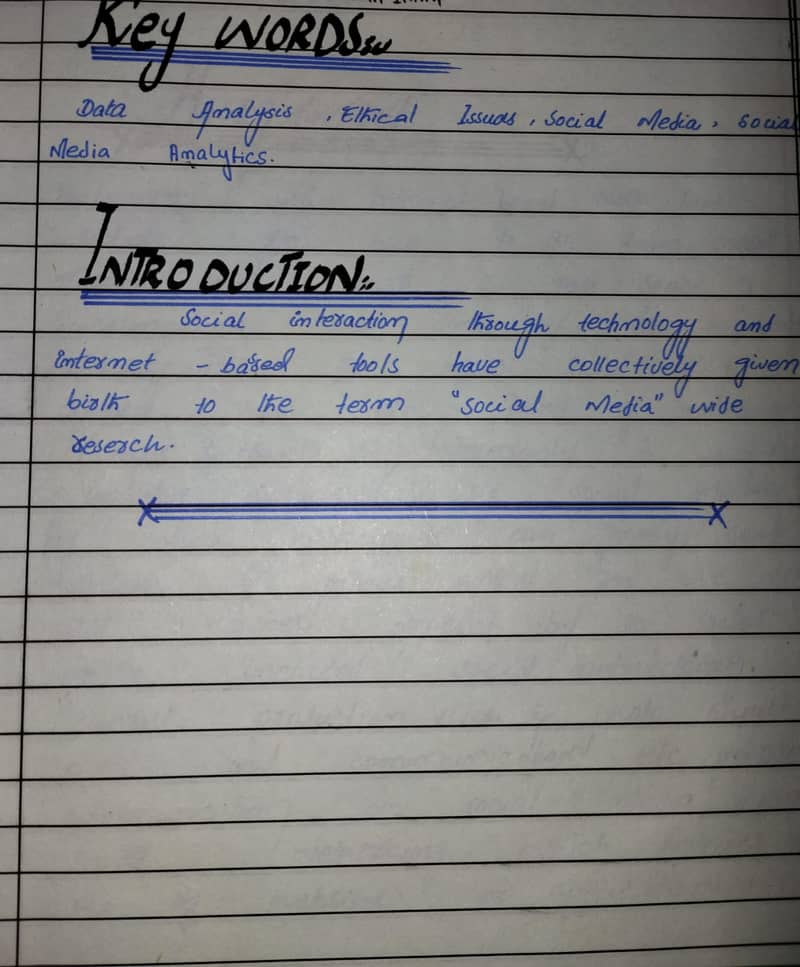 Key WORDS:
Data Analysis, Ethical Issues, Social Media, Social
Media Analytics.
INTRODUCTION:
Social interaction through technology and
internet - based tools have collectively given
birth to the term "social Media" wide
reserch.